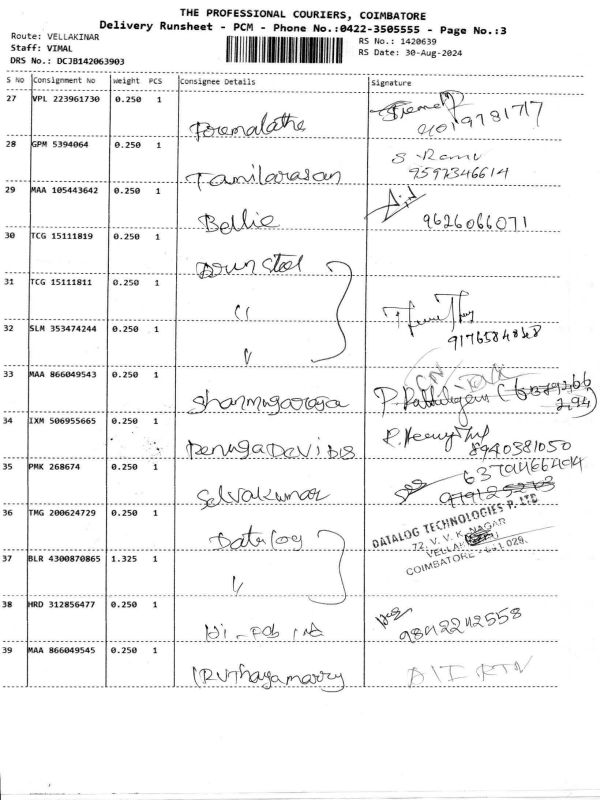 THE PROFESSIONAL COURIERS, COIMBATORE
Delivery Runsheet - PCM - Phone No.:0422-3505555 - Page No.:3
Route: VELLAKINAR
RS No.: 1420639
Staff: VIMAL
RS Date: 30-Aug-2024
DRS No.: DCJB142063903
S No Consignment No weight PCS Consignee Details Signature
27 VPL 223961730 0.250 1
Premalatha
28 GPM 5394064 0.250 1
S. Ramu
Tamilarasan
29 MAA 105443642 0.250 1
Bellie 9626066071
30 TCG 15111819 0.250 1
31 TCG 15111811 0.250 1
"
32 SLM 353474244 0.250 1
"
33 MAA 866049543 0.250 1
Shanmugaraja
34 IXM 506955665 0.250 1
8940381050
35 PMK 268674 0.250 1
Selvakumar
36 TMG 200624729 0.250 1
Datalog
DATALOG TECHNOLOGIES P. LTD
72, V. V. K. NAGAR
37 BLR 4300870865 1.325 1
COIMBATORE - 641 029.
"
38 HRD 312856477 0.250 1
9842242558
39 MAA 866049545 0.250 1
Iruthayamarry